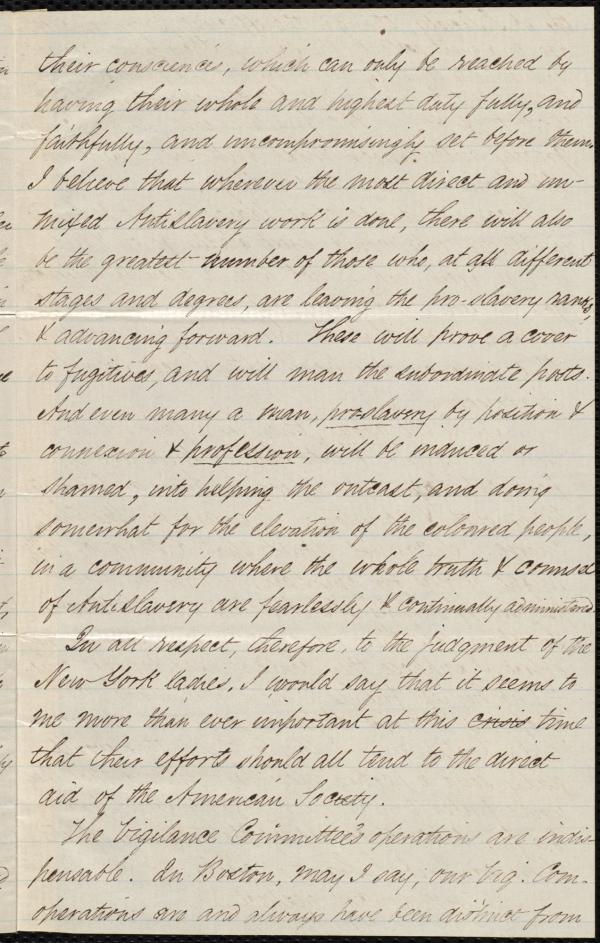 their consciences, which can only be reached by
having their whole and highest duty fully, and
faithfully, and uncompromisingly set before them.
I believe that wherever the most direct and un-
mixed Antislavery work is done, there will also
be the greatest number of those who, at all different
stages and degrees, are leaving the pro-slavery ranks,
& advancing forward. These will prove a cover
to fugitives, and will man the subordinate posts.
And even many a man, proslavery by position &
connexion & profession, will be induced or
shamed, into helping the outcast, and doing
somewhat for the elevation of the coloured people,
in a community where the whole truth & counsel
of Antislavery are fearlessly & continually administered.
In all respect, therefore, to the judgment of the
New York ladies, I would say that it seems to
me more than ever important at this crisis time
that their efforts should all tend to the direct
aid of the American Society.
The Vigilance Committee's operations are indis-
pensable. In Boston, may I say, our Vig. Com.
operations are and always have been distinct from